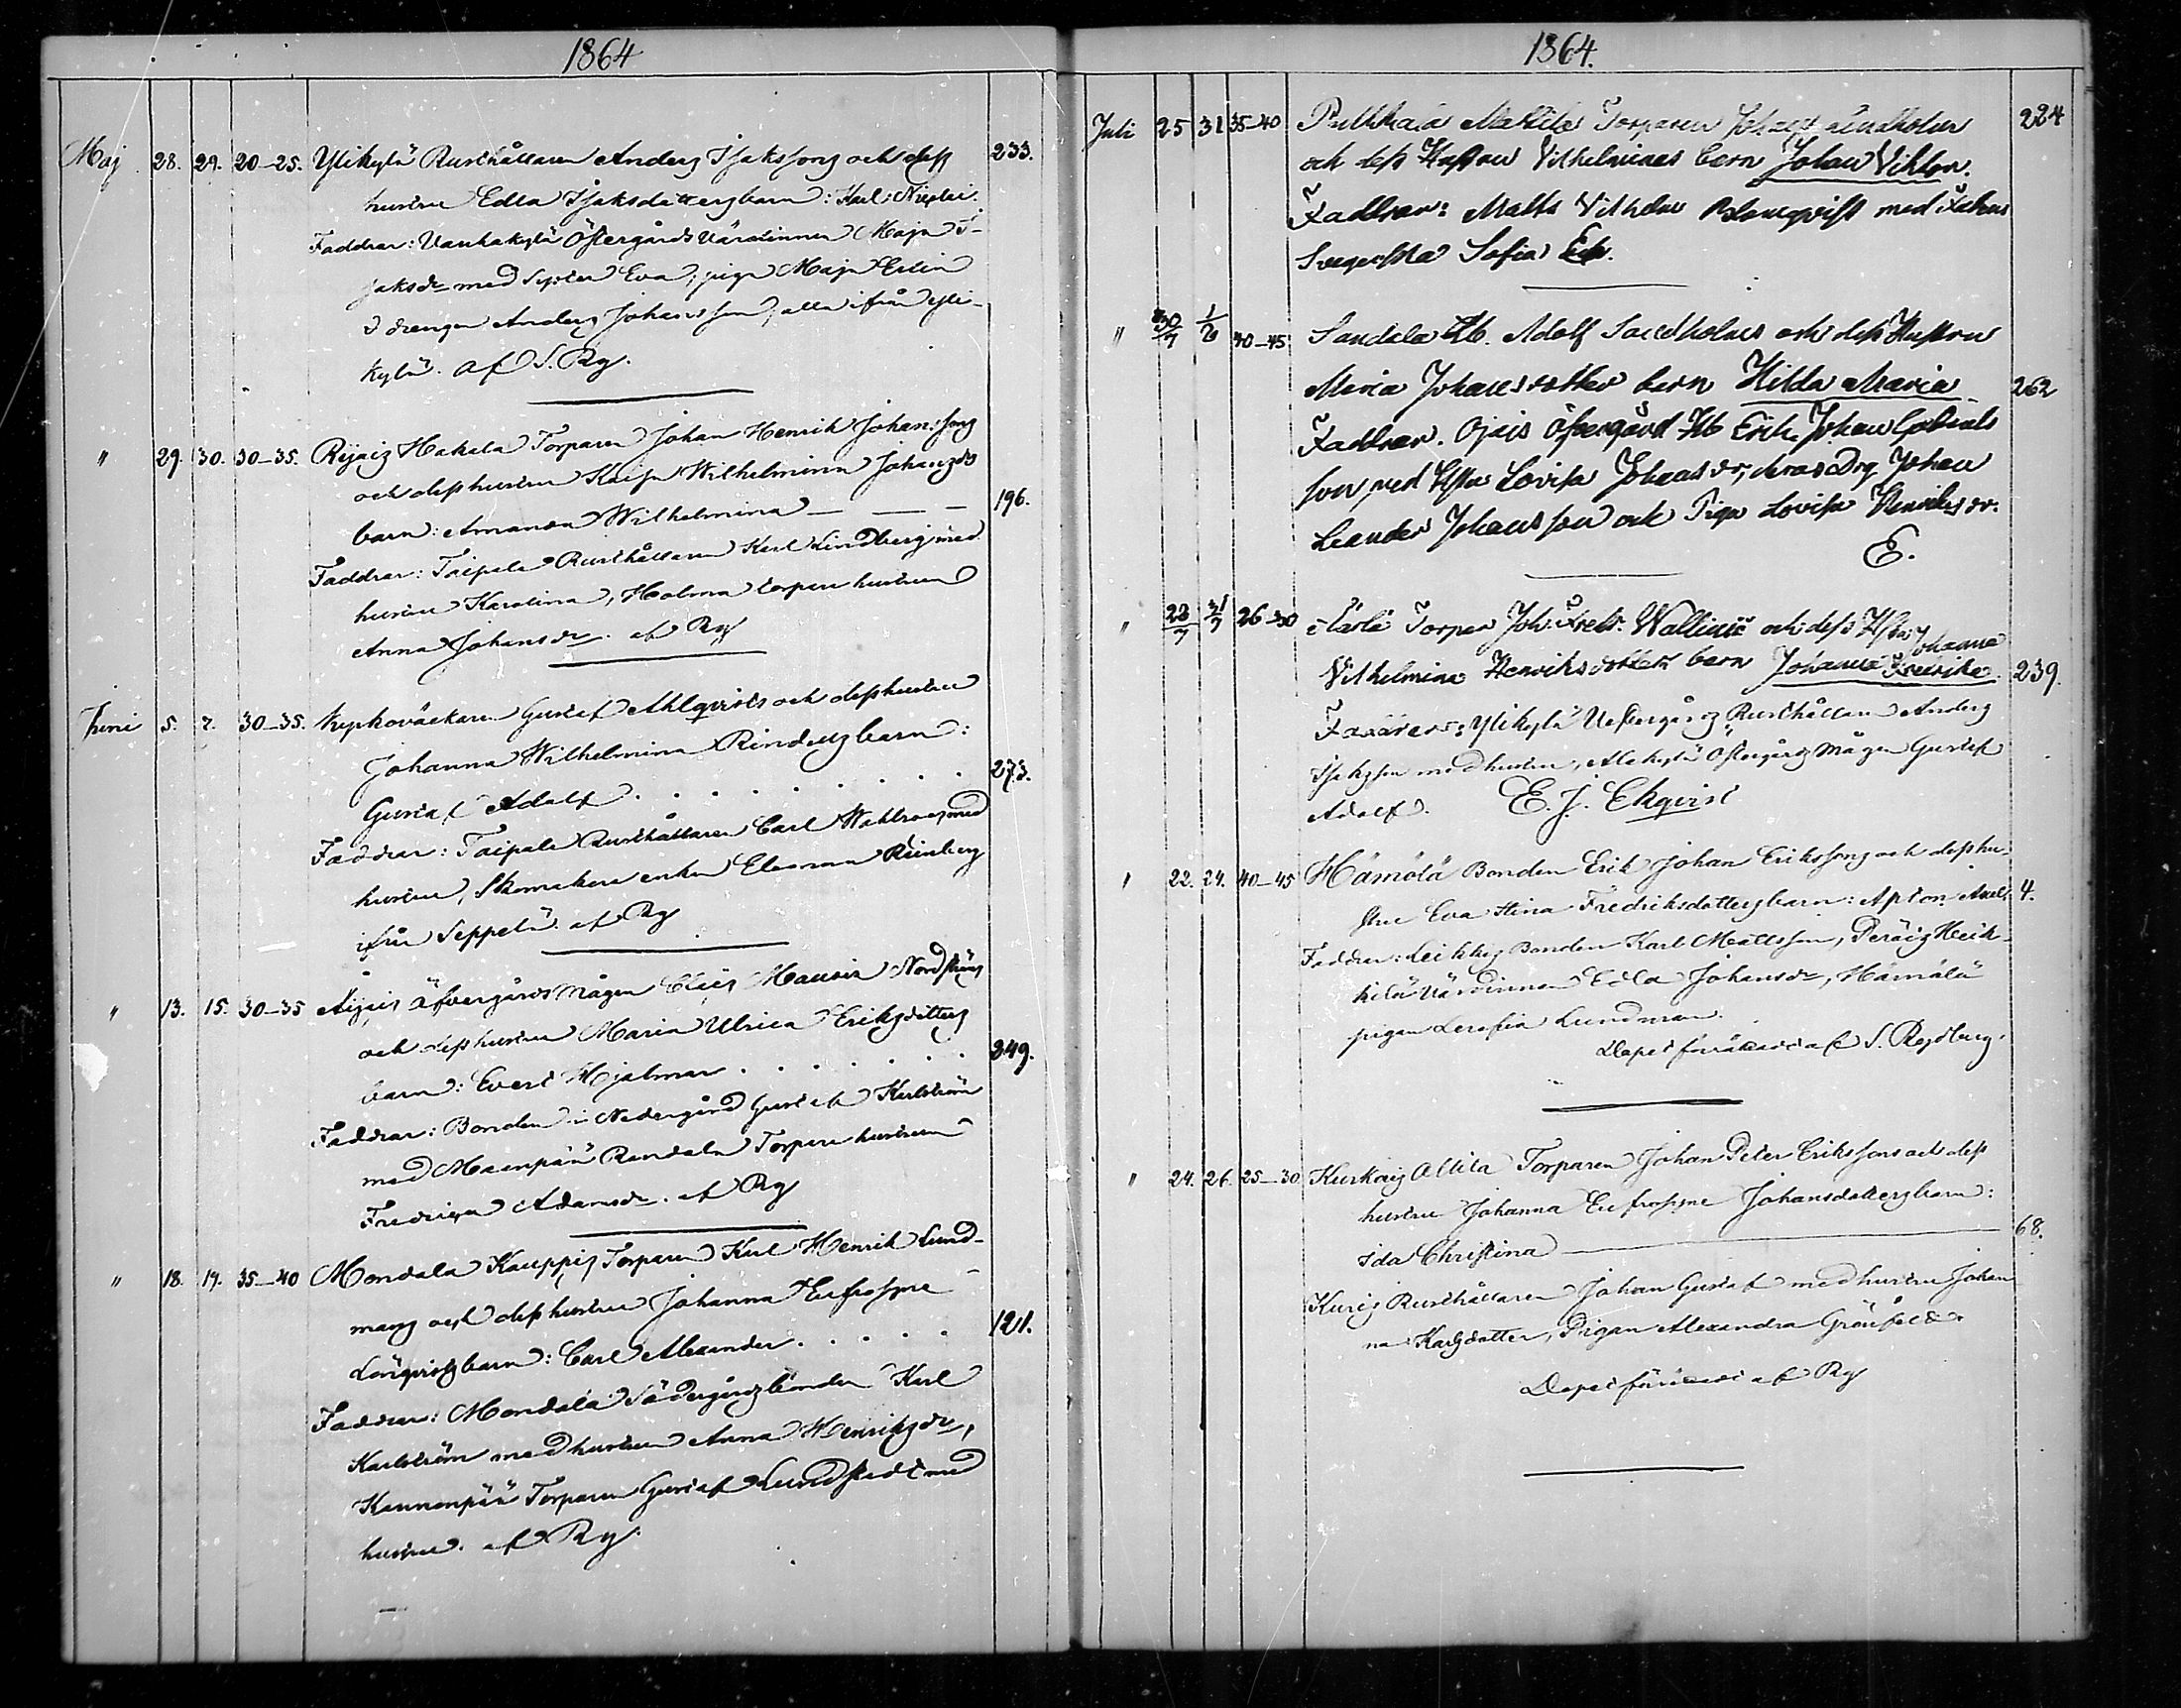 1864
Maj 28. 29. 20-25. Ylikylä Rusthållaren Anders Isakssons och dess 233.
hustru Edla Isaksdotters barn: Karl
Faddrar: Vanhakylä Östergårds Värdinnan Maja I-
saksdr med Syster Eva, piga Maja
drengen Anders Johansson, alla ifrån Yli-
kylä. af S. Rg.
" 29. 30. 30-35. Rijaiz Hakala Torparen Johan Henrik Johanssons
och dess hustru Kaisa Wilhelmina Johansds
barn: Amanda Wilhelmina 196.
Faddrar: Taipale Rusthållaren Karl Lindberg med
hustru Karolina, Holma torpare hustrun
Anna Johansdr. af Rg
Juni 5. 7. 30-35. Gustaf Ahlqvists och dess hustru
Johanna Wilhelmina barn:
Gustaf Adolf 273.
Faddrar: Taipale Rusthållaren Carl Wahlroos med
hustru, Skomakare enkan Eleonora
ifrån Seppelä. af Rg
" 13. 15. 30-35 Äijäis Öfvergårds Mågen Nordströms
och dess hustru Maria Ulrica Eriksdotters
barn: Evert Hjalmar 249.
Faddrar: Bonden i Nedergård Gustaf Karlström
med Randala Torpare hustrun
Adamsdr. af Rg
" 18. 19. 35-40 Mondala Kauppis Torparen Karl Henrik Lund-
mans och dess hustru Johanna Eufrosyne
Lönqvists barn: Carl Alexander 121.
Faddrar: Mondala Södergårds bonden Karl
Karlström med hustru Anna Henriksdr,
Torparen Gustaf Lundstedt med
hustru. af Rg.
1864.
Juli 25 31 35-40 Mattila Torparen Johan Lindholm 224
och dess Hustru Vilhelminas barn Johan Viktor.
Faddrar: Matts Vilhelm med
Sofia Ek.
" 30/7 40-45 Sandala Adolf Sandholms och dess Hustru
Maria Johansdotter barn Hilda Maria 262
Faddrar. Öfvergård Erik Johan Gabriels
son med Hstu Lovisa Johansdr, deras Drg Johan
Leander Johansson och Piga Lovisa Henriksdr.
E.
" 28/7 31/7 26-30 Torpar Joh. Fredr. Wallinie och dess Hstu Johanna
Vilhelmina Henriksdotters barn Johanna Fredrika 239.
Faddrar: Ylikylä Vestergårds Rusthållare Anders
Isaksson med hustru, Alakylä Östergårds Mågen Gustaf
Adolf. E. J. Ekqvist
" 22. 24. 40-45 Hämölä Bonden Erik Johan Erikssons och dess hu-
stru Eva Stina Fredriksdotters barn: Axel 4.
Faddrar: Bonden Karl Mattsson,
Värdinnan Edla Johansdr, Hämälä
pigan Serafia Lundman.
Dopet förrättadt af S. Rydberg.
" 24. 26. 25-30 Attila Torparen Johan Peter Erikssons och dess
hustru Johanna Eufrosyne Johansdotters barn:
Ida Christina 68.
Rusthållaren Johan Gustaf med hustru Johan
na Karlsdotter, Pigan Alexandra Grönfeldt.
Dopet förrättadt af Rg